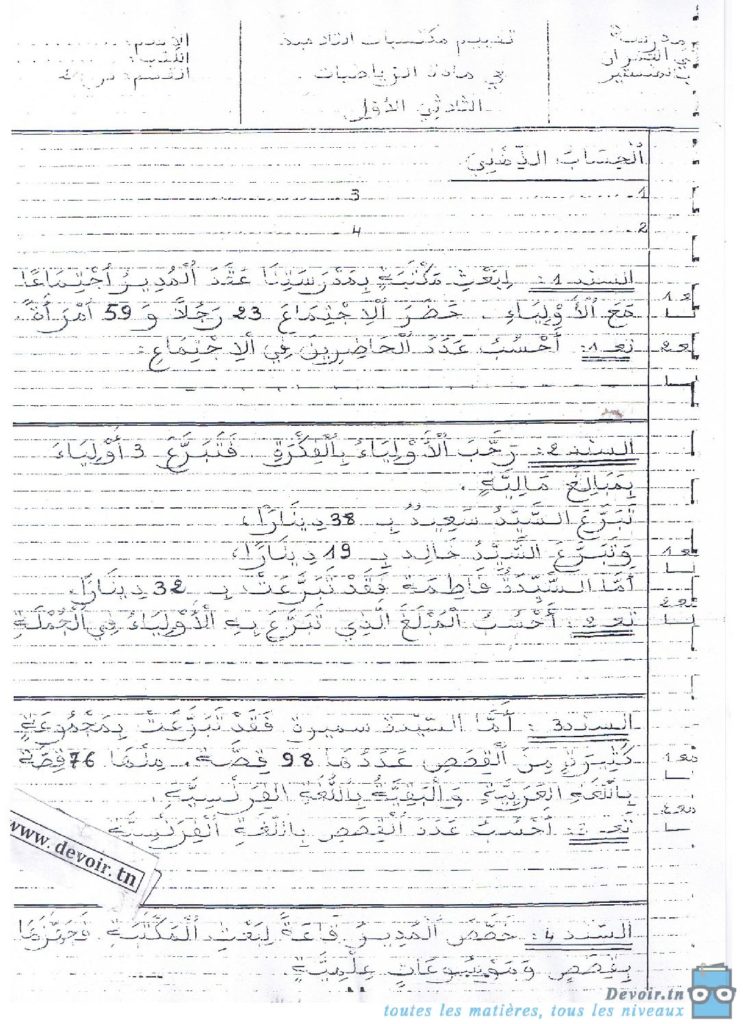 مدرسة
حي القمران
بالمنستير
تقييم مكتسبات التلاميذ
في مادة الرياضيات
الثلاثي الأول
الإسم:
اللقب:
القسم:
الْحِسَابُ الذِّهْنِيّ
1 3
2 4
السند 1: لِبَعْثِ مَكْتَبَةٍ بِمَدْرَسَتِنَا عَقَدَ الْمُدِيرُ اُجْتِمَاعًا
مَعَ الْأَوْلِيَاءِ. حَضَرَ الْاِجْتِمَاعَ 23 رَجُلًا وَ 59 اُمْرَأَةً.
تعـ 1: أَحْسُبُ عَدَدَ الْحَاضِرِينَ فِي الْاِجْتِمَاعِ:
مع 1
مع 2
السند 2: رَحَّبَ الْأَوْلِيَاءُ بِالْفِكْرَةِ. فَتَبَرَّعَ 3 أَوْلِيَاءَ
بِمَبَالِغَ مَالِيَّةٍ.
تَبَرَّعَ السَّيِّدُ سَعِيدٌ بِـ 38 دِينَارًا،
وَتَبَرَّعَ السَّيِّدُ خَالِد بِـ 19 دِينَارًا،
أَمَّا السَّيِّدَةُ فَاطِمَة فَقَدْ تَبَرَّعَتْ بِـ 32 دِينَارًا.
تعـ 2: أَحْسُبُ الْمَبْلَغَ الَّذِي تَبَرَّعَ بِهِ الْأَوْلِيَاءُ فِي الْجُمْلَةِ
مع 1
مع 2
السند 3: أَمَّا السَّيِّدة سميرة فَقَدْ تَبَرَّعَتْ بِمَجْمُوعَةٍ
كَبِيرَةٍ مِنَ الْقِصَصِ عَدَدُهَا 98 قِصَّة. مِنْهَا 76 قِصَّة
بِاللُّغَةِ الْعَرَبِيَّةِ وَالْبَقِيَّةُ بِاللُّغَةِ الْفَرَنْسِيَّةِ.
تعـ 3: أَحْسُبُ عَدَدَ الْقِصَصِ بِاللُّغَةِ الْفَرَنْسِيَّةِ
مع 1
مع 2
السّند 4: خَصَّصَ الْمُدِيرُ قَاعَةً لِبَعْثِ الْمَكْتَبَةِ فَجَهَّزَهَا
بِقِصَصٍ وَمَوْسُوعَاتٍ عِلْمِيَّةٍ
www.devoir.tn
Devoir.tn
toutes les matières, tous les niveaux